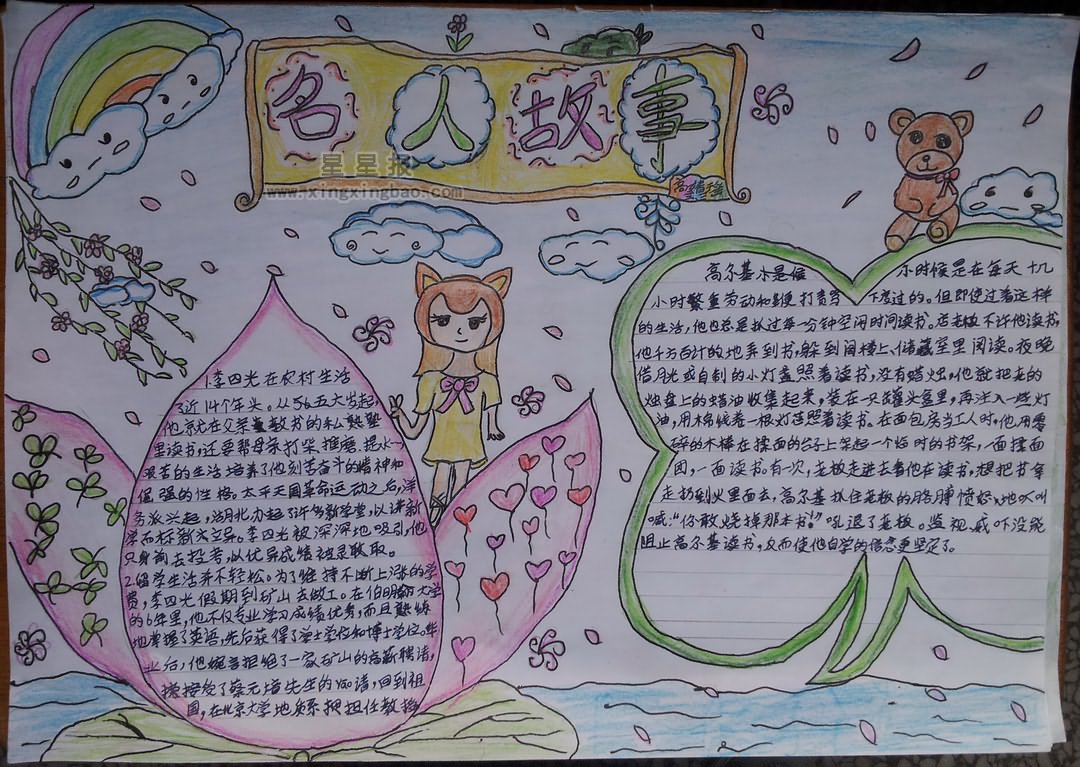 名人故事
星星报
www.xingxingbao.com
1.李四光在农村生活
了近14个年头。从五六大岁起,
他就在父亲教书的私人熟塾
里读书,还要帮母亲打柴、推磨、提水…
艰苦的生活培养了他刻苦奋斗的精神和
倔强的性格。太平天国革命运动之后,洋
务派兴起,湖北办起了许多新学堂,以讲新
学而标新立异。李四光被深深地吸引,他
只身前去投考,以优异成绩被录取。
2.留学生活并不轻松。为了维持不断上涨的学
费,李四光假期到矿山去做工。在伯明翰大学
的6年里,他不仅专业学习成绩优秀,而且熟练
地掌握了英语,先后获得了学士学位和博士学位。毕
业后,他婉言拒绝了一家矿山的高薪聘请,
接受了蔡元培先生的邀请,回到祖
国,在北京大学地质系担任教授
高尔基小是候 小时候是在每天十几
小时繁重劳动和 打骂 下度过的。但即使过着这样
的生活,他也总是抓过每一分钟空闲时间读书。店老板不许他读书,
他千方百计的地弄到书,躲到阁楼上、储藏室里阅读。夜晚
借月光或自制的小灯盏照着读书,没有蜡烛,他就把老的
烛盘上的蜡油收集起来,装在一只罐头盒里,再注入一些灯
油,用棉绒卷一根灯芯照着读书。在面包房当工人时,他用零
碎的木棒在揉面的台子上架起一个临时的书架,一面揉面
团,一面读书。有一次,老板走进去看他在读书,想把书拿
走扔到火里面去,高尔基抓住老板的胳膊愤怒地吼叫
喊:“你敢烧掉那本书!”吼退了老板。监视、威吓没能
阻止高尔基读书,反而使他自学的信念更坚定了。